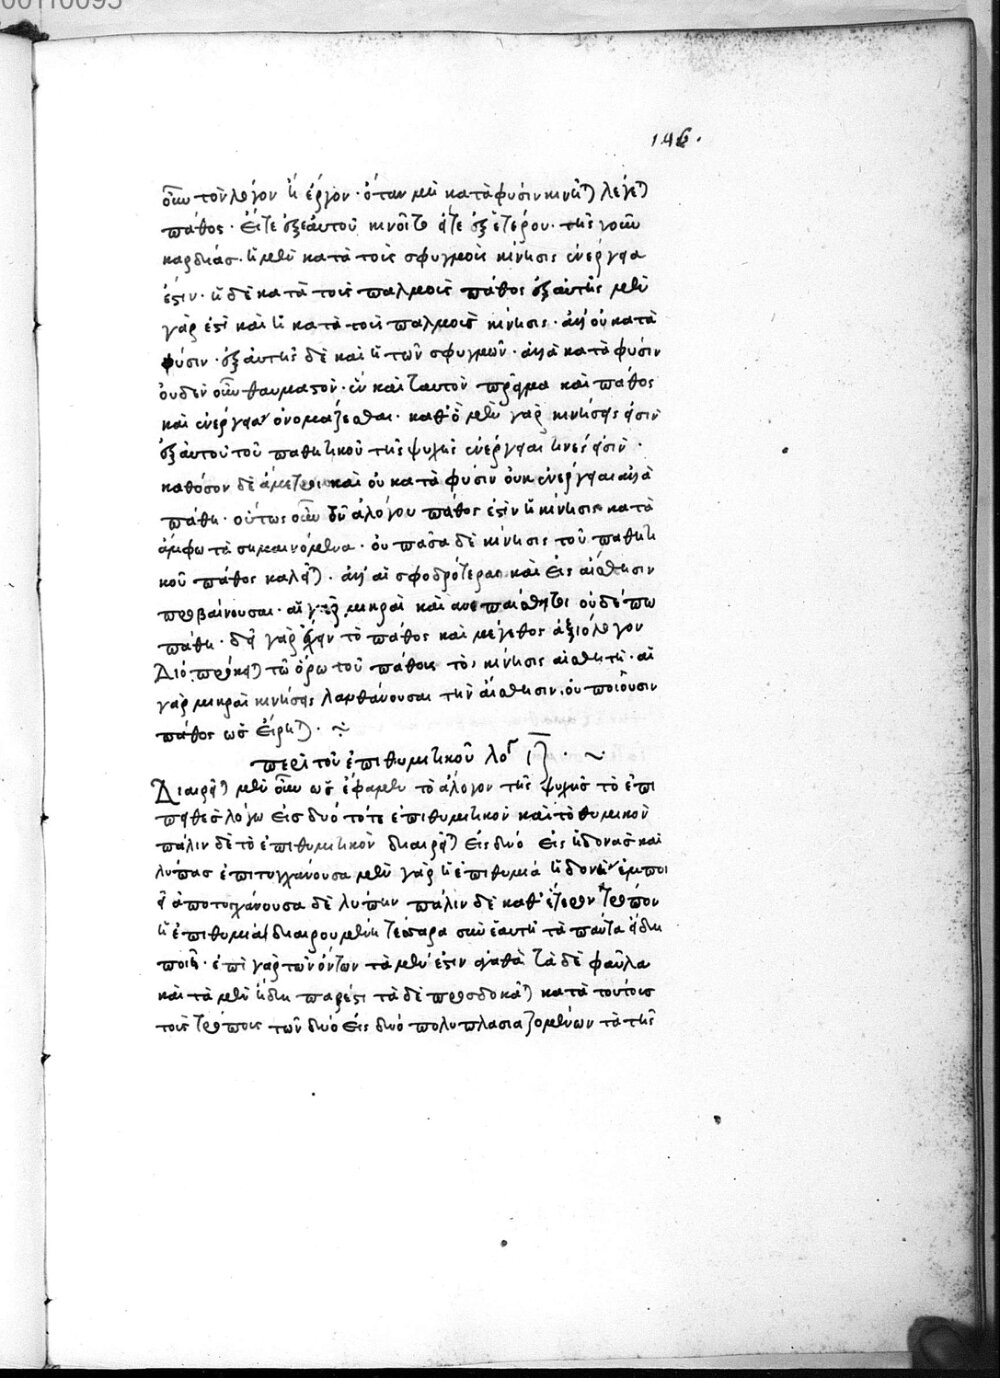 00110095
146.
οὖν τὸν λόγον ἡ ἐργον · ὅταν μὴ κατὰ φύσιν κινῆται λέγεται
πάθος · εἴτε ἐξ ἑαυτοῦ κινοῖτο εἴτε ἐξ ἑτέρου · τῆς γοῦν
καρδίας · ἡ μὲν κατὰ τοὺς σφυγμοὺς κίνησις ἐνέργεια
ἐστιν · ἡ δὲ κατὰ τοὺς παλμοὺς πάθος ἐξ αὐτῆς μὲν
γάρ ἐστι καὶ ἡ κατὰ τοὺς παλμοὺς κίνησις · ἀλλ' οὐ κατὰ
φύσιν · ἐξ αὐτῆς δὲ καὶ ἡ τῶν σφυγμῶν · ἀλλὰ κατὰ φύσιν
οὐδὲν οὖν θαυμαστὸν · ἓν καὶ ταυτὸν πρᾶγμα καὶ πάθος
καὶ ἐνέργειαν ὀνομάζεσθαι · καθ' ὃ μὲν γὰρ κινήσεις εἰσὶν
ἐξ αὐτοῦ τοῦ παθητικοῦ τῆς ψυχῆς ἐνέργειαι τινές εἰσὶν ·
καθόσον δὲ ἄμετροι καὶ οὐ κατὰ φύσιν οὐκ ἐνέργειαι ἀλλὰ
πάθη · οὕτως οὖν τοῦ ἀλόγου πάθος ἐστὶν ἡ κίνησις κατὰ
ἄμφω τὰ σημαινόμενα · οὐ πᾶσα δὲ κίνησις τοῦ παθητι
κοῦ πάθος καλεῖται · ἀλλ' αἱ σφοδρότεραι καὶ εἰς αἴσθησιν
προβαίνουσαι · αἱ γὰρ μικραὶ καὶ ἀνεπαίσθητοι οὐδέπω
πάθη · δεῖ γὰρ ἔχειν τὸ πάθος καὶ μέγεθος ἀξιόλογον
Διὸ πρόσκειται τῷ ὅρῳ τοῦ πάθους τὸ, κίνησις αἰσθητὴ · αἱ
γὰρ μικραὶ κινήσεις λανθάνουσαι τὴν αἴσθησιν, οὐ ποιοῦσιν
πάθος ὡς εἴρηται · ÷
περὶ τοῦ ἐπιθυμητικοῦ λόγ ιζ · ~
Διαιρεῖται μὲν οὖν ὡς ἔφαμεν τὸ ἄλογον τῆς ψυχῆς τὸ ἐπι
πειθὲς λόγω εἰς δυό τότε ἐπιθυμητικὸν καὶ τὸ θυμικὸν
πάλιν δὲ τὸ ἐπιθυμητικὸν διαιρεῖται εἰς δυό εἰς ἡδονὰς καὶ
λύπας ἐπιτυγχάνουσα μὲν γὰρ ἡ ἐπιθυμία ἡδονὴν ἐμποι
εῖ ἀποτυγχάνουσα δὲ λύπην πάλιν δὲ καθ' ἕτερον τρόπον
ἡ ἐπιθυμία διαιρουμένη τέσσαρα σὺν ἑαυτῆ τὰ πάντα εἴδη
ποιεῖ · ἐπὶ γὰρ τῶν ὄντων τὰ μέν ἐστιν ἀγαθὰ τὰ δὲ φαῦλα
καὶ τὰ μὲν ἤδη πάρεστι τὰ δὲ προσδοκᾶται κατὰ τούτους
τοὺς τρόπους τῶν δυό εἰς δυό πολυπλασιαζομένων τὰ τῆς